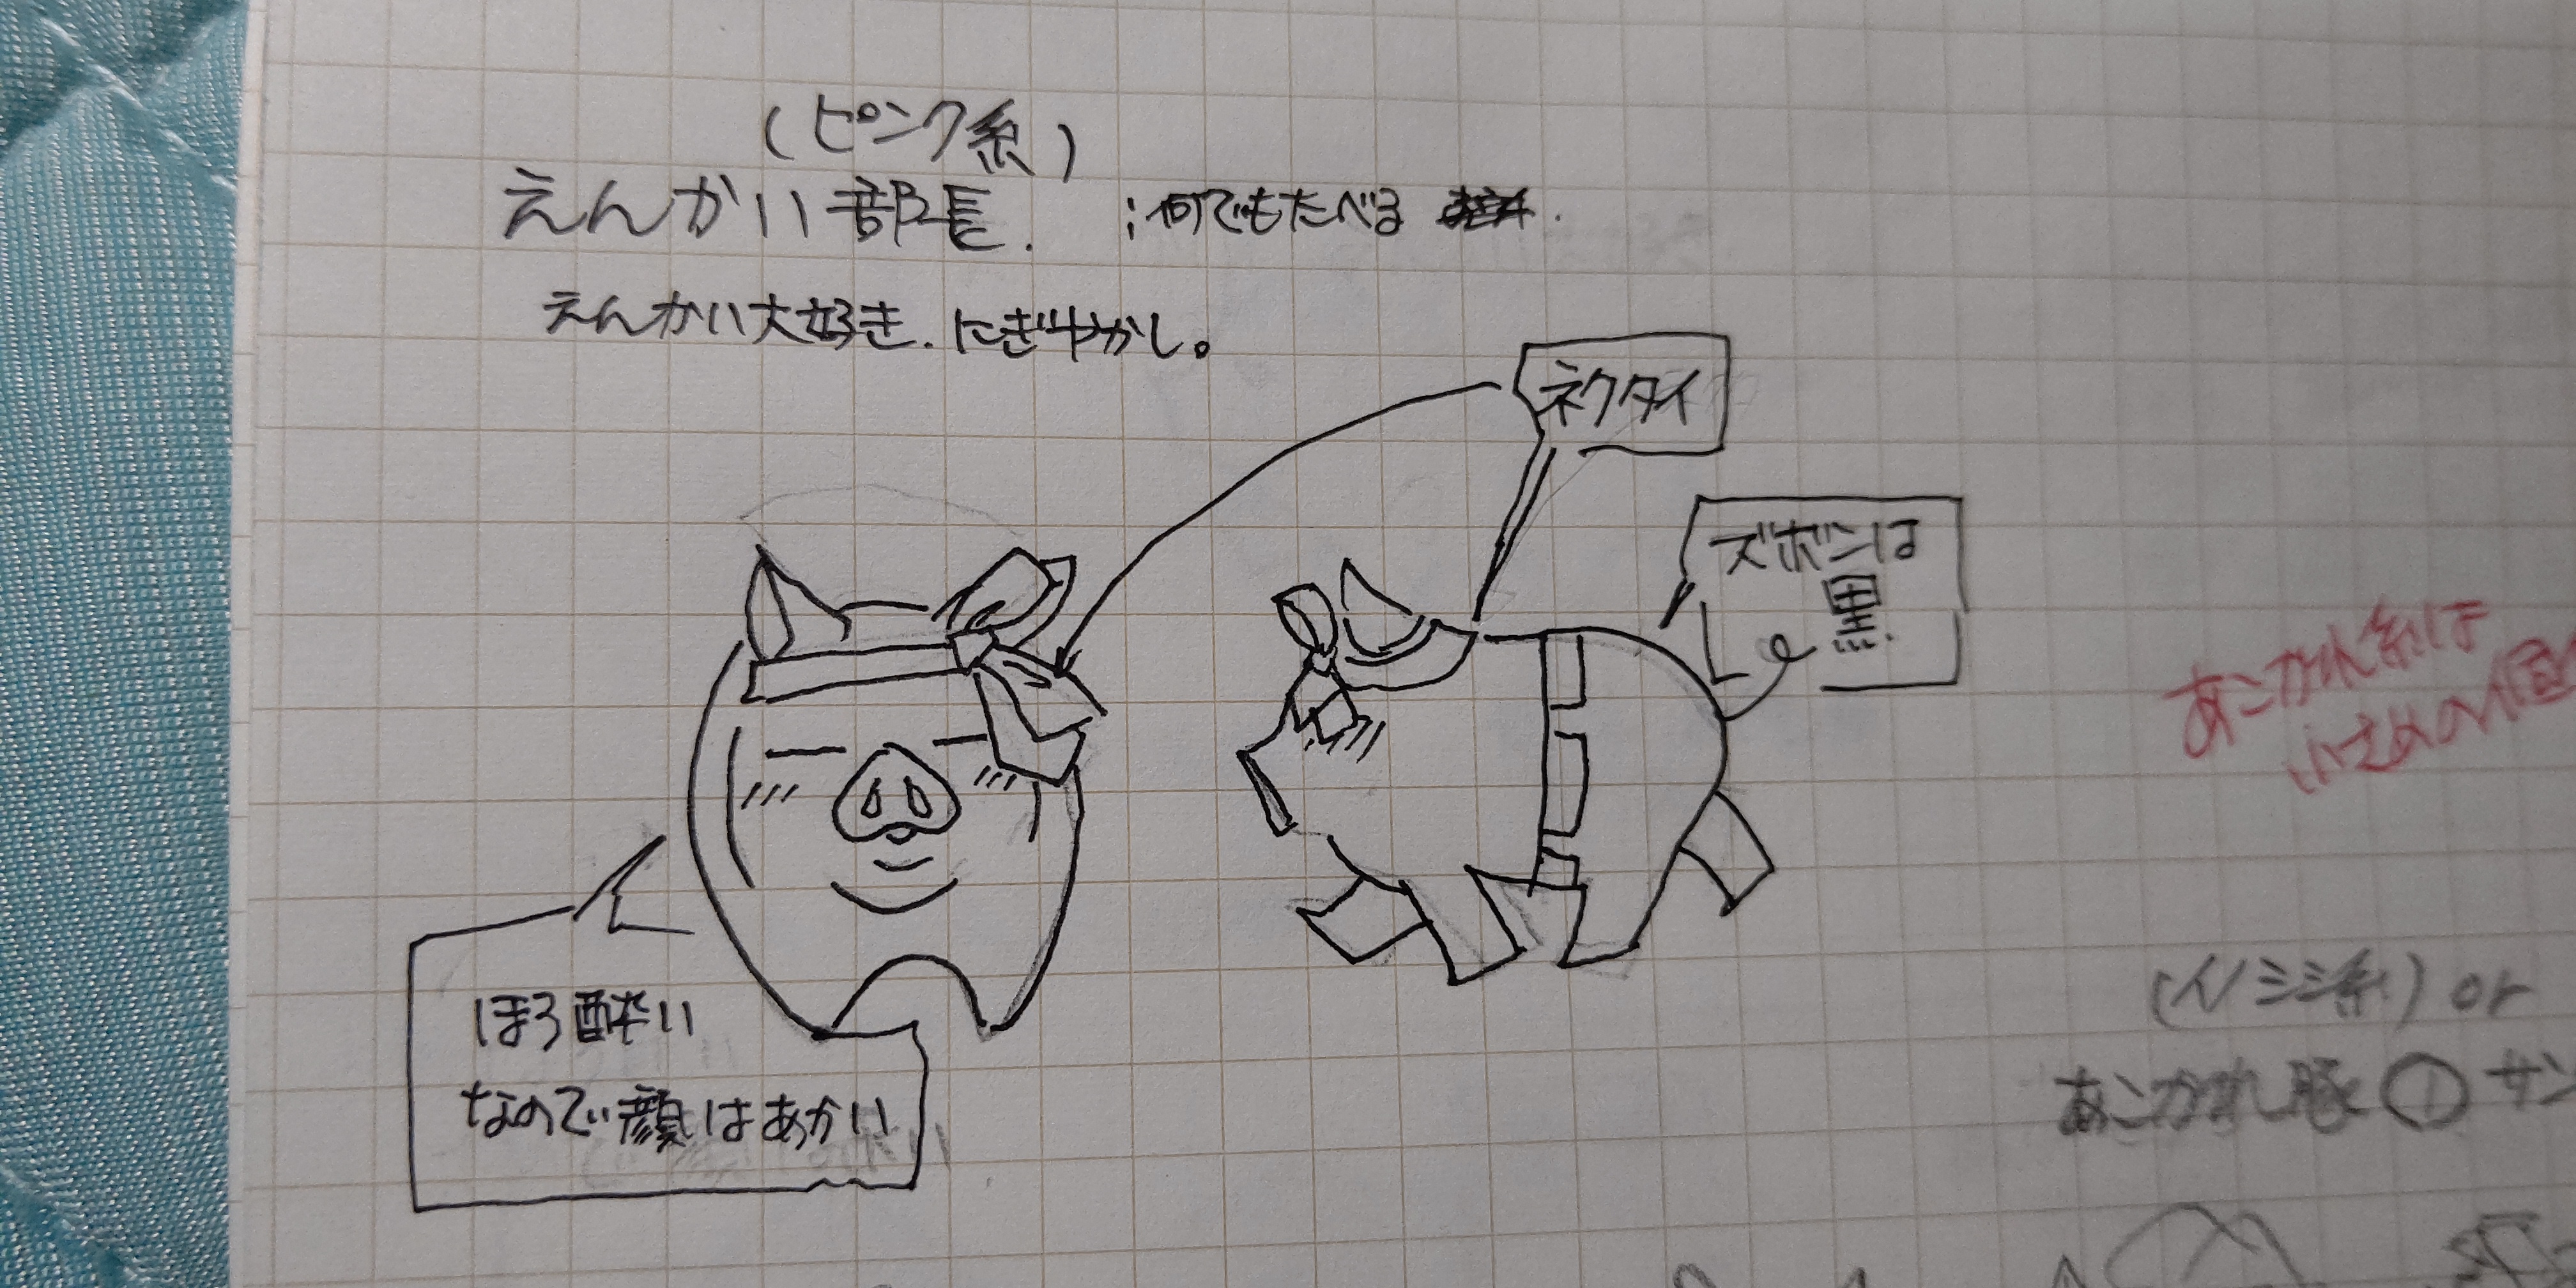 (ピンク系)
えんかい部長. ;何でもたべる
えんかい大好き. にぎやかし。
ネクタイ
ズボンは
黒.
ほろ酔い
なので顔はあかい
あこがれ系は
(イノシシ系) or
あこがれ豚 ① サン